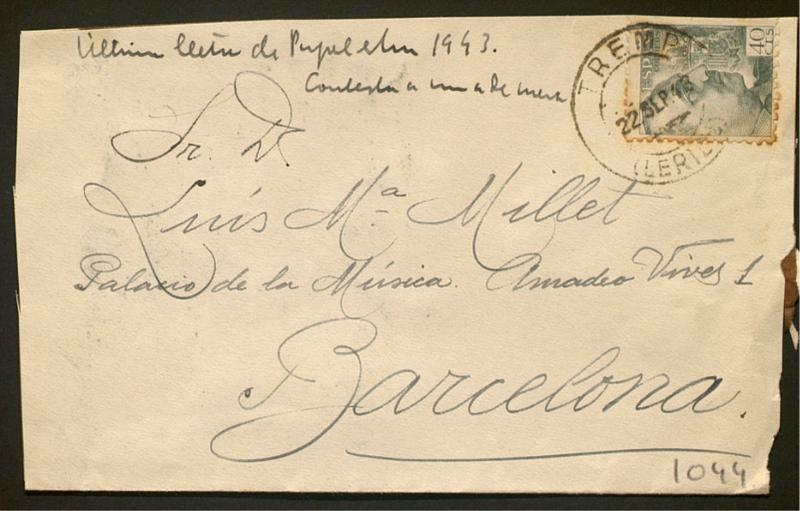 Última lletra de Pujol el 1943.
Contesta a una de meva
TREMP
22 SEP. 43
(LERIDA)
ESPAÑA
40 CTS
Sr. D.
Luís Mª Millet
Palacio de la Música. Amadeo Vives 1
Barcelona.
1044